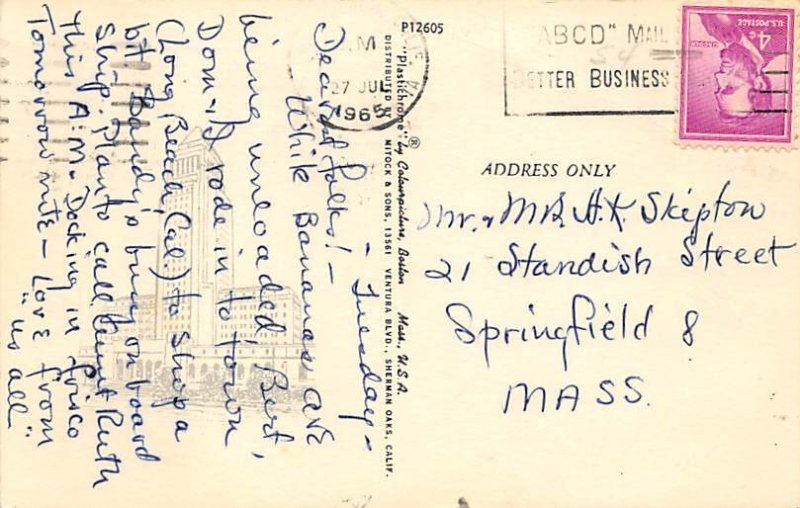 - Tuesday -
Dear old folks! -
While Bananas are
being unloaded, Bert,
Dom & I rode in to town
(Long Beach, Cal) to shop a
bit. Bandy's busy on board
ship. Plan to call Aunt Ruth
this A.M. Docking in Frisco
Tomorrow nite - Love from
"us all"
P12605
"Plastichrome" ® by Colourpicture, Boston Mass., U.S.A.
DISTRIBUTED BY MITOCK & SONS, 13561 VENTURA BLVD., SHERMAN OAKS, CALIF.
M
27 JUL
1965
"ABCD" MAIL
BETTER BUSINESS
U.S. POSTAGE
4¢
LINCOLN
ADDRESS ONLY
Mr. & Mrs. H.K. Skipton
21 Standish Street
Springfield 8
MASS.